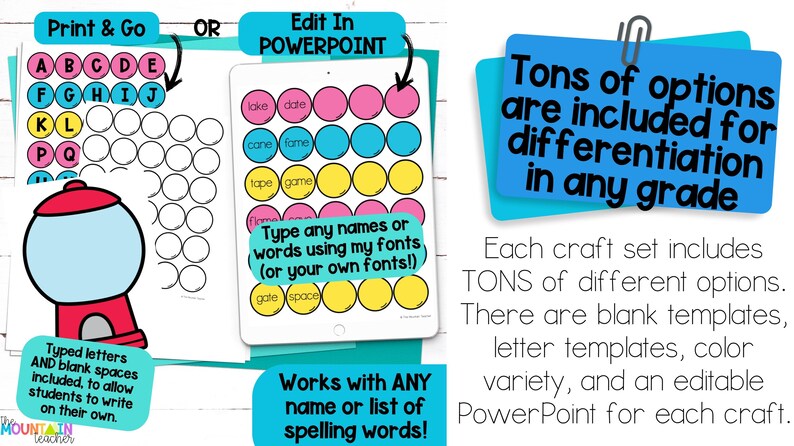 Print & Go
OR
Edit In
POWERPOINT
A B C D E
F G H I J
K L
P Q
lake date
cane fame
tape game
gate space
Type any names or
words using my fonts
(or your own fonts!)
© The Mountain Teacher
© The Mountain Teacher
Typed letters
AND blank spaces
included, to allow
students to write
on their own.
Works with ANY
name or list of
spelling words!
the
MOUNTAIN
teacher
Tons of options
are included for
differentiation
in any grade
Each craft set includes
TONS of different options.
There are blank templates,
letter templates, color
variety, and an editable
PowerPoint for each craft.